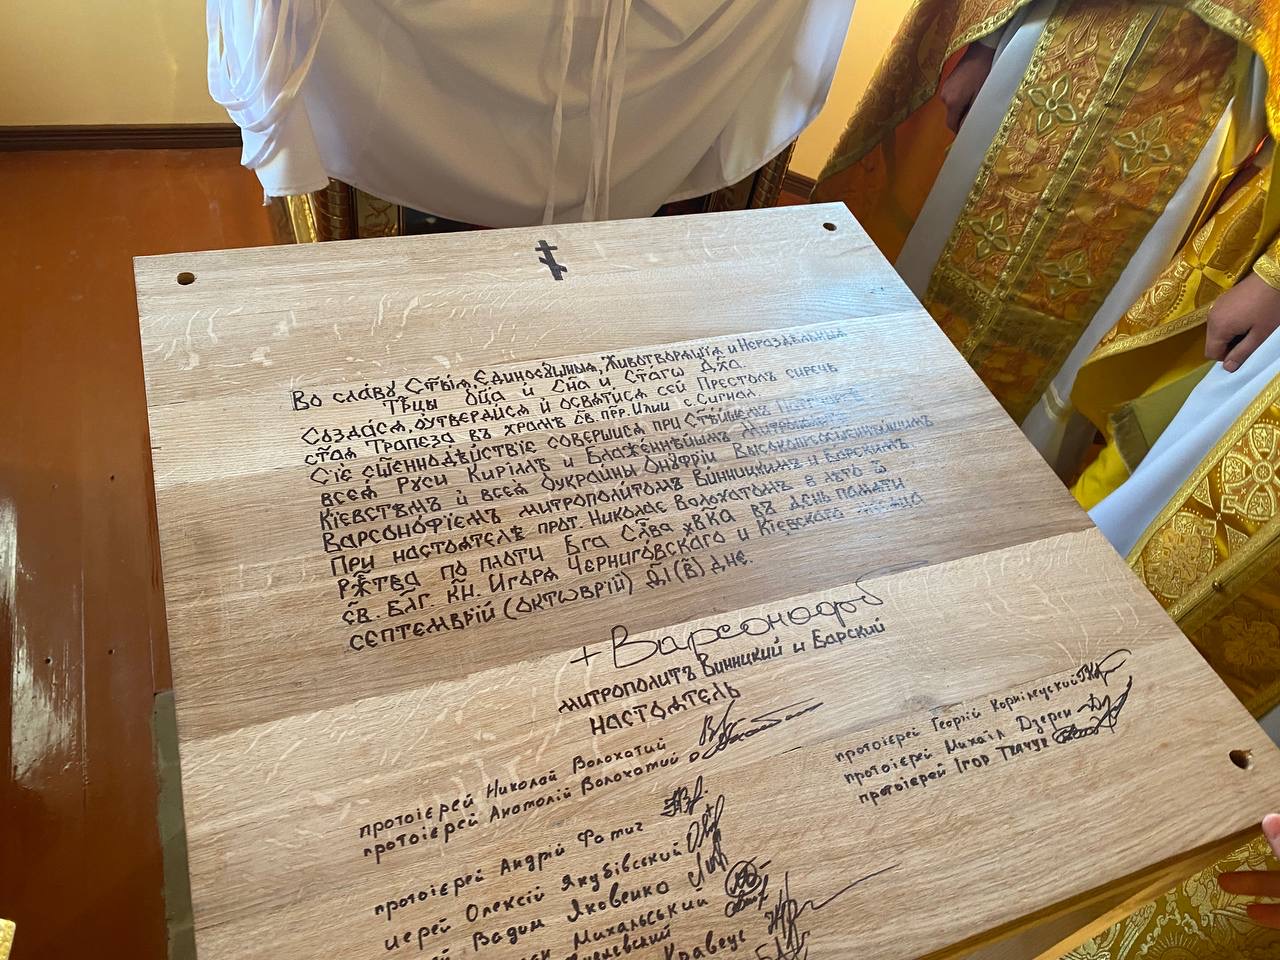 Во славу Ст҃ыѧ Єдиносꙋщныѧ, Животворѧщїѧ и Нераздельныѧ
Трⷪ҇цы Ѻц҃а и Сн҃а и Ст҃агѡ Дх҃а.
Создасѧ, ѹтвердисѧ и ѡсвѧтисѧ сей Престолъ сиречь
ст҃аѧ Трапеза въ храмѣ св. прр. Илии с. Сигнал.
Сїє сщ҃еннодѣйствїе совершисѧ при Ст҃ѣйшемъ
всеѧ Руси Кирїллѣ и Блаженнѣйшимъ Митрополитѣ
Кїевстѣмъ и всеѧ Ѹкраины Ѻнуфрїи Высокопреосвѧщеннѣйшимъ
Варсонофїемъ митрополитомъ Винницкимъ и Барскимъ
При настоѧтелѣ прот. Николаѣ Волохатомъ в лѣто ѿ
Рж҃тва по плоти Бг҃а Сл҃ва въ день памати
св. бл҃г. кн. Игорѧ Черниговскаго и Кїевскаго месѧца
септемврїй (октѡврїй) дне.
+ Варсонофій
митрополитъ Винницкий и Барский
настоѧтель
протоієрей Николай Волохатий
протоієрей Анатолій Волохатий
протоієрей Андрій Фотич
иерей Олексій Якубівський
Вадим Яковенко
Михальський
Кравець
протоієрей Георгій Корнілецуский
протоієрей Михаїл Дзерен
протоієрей Ігор Ткачук